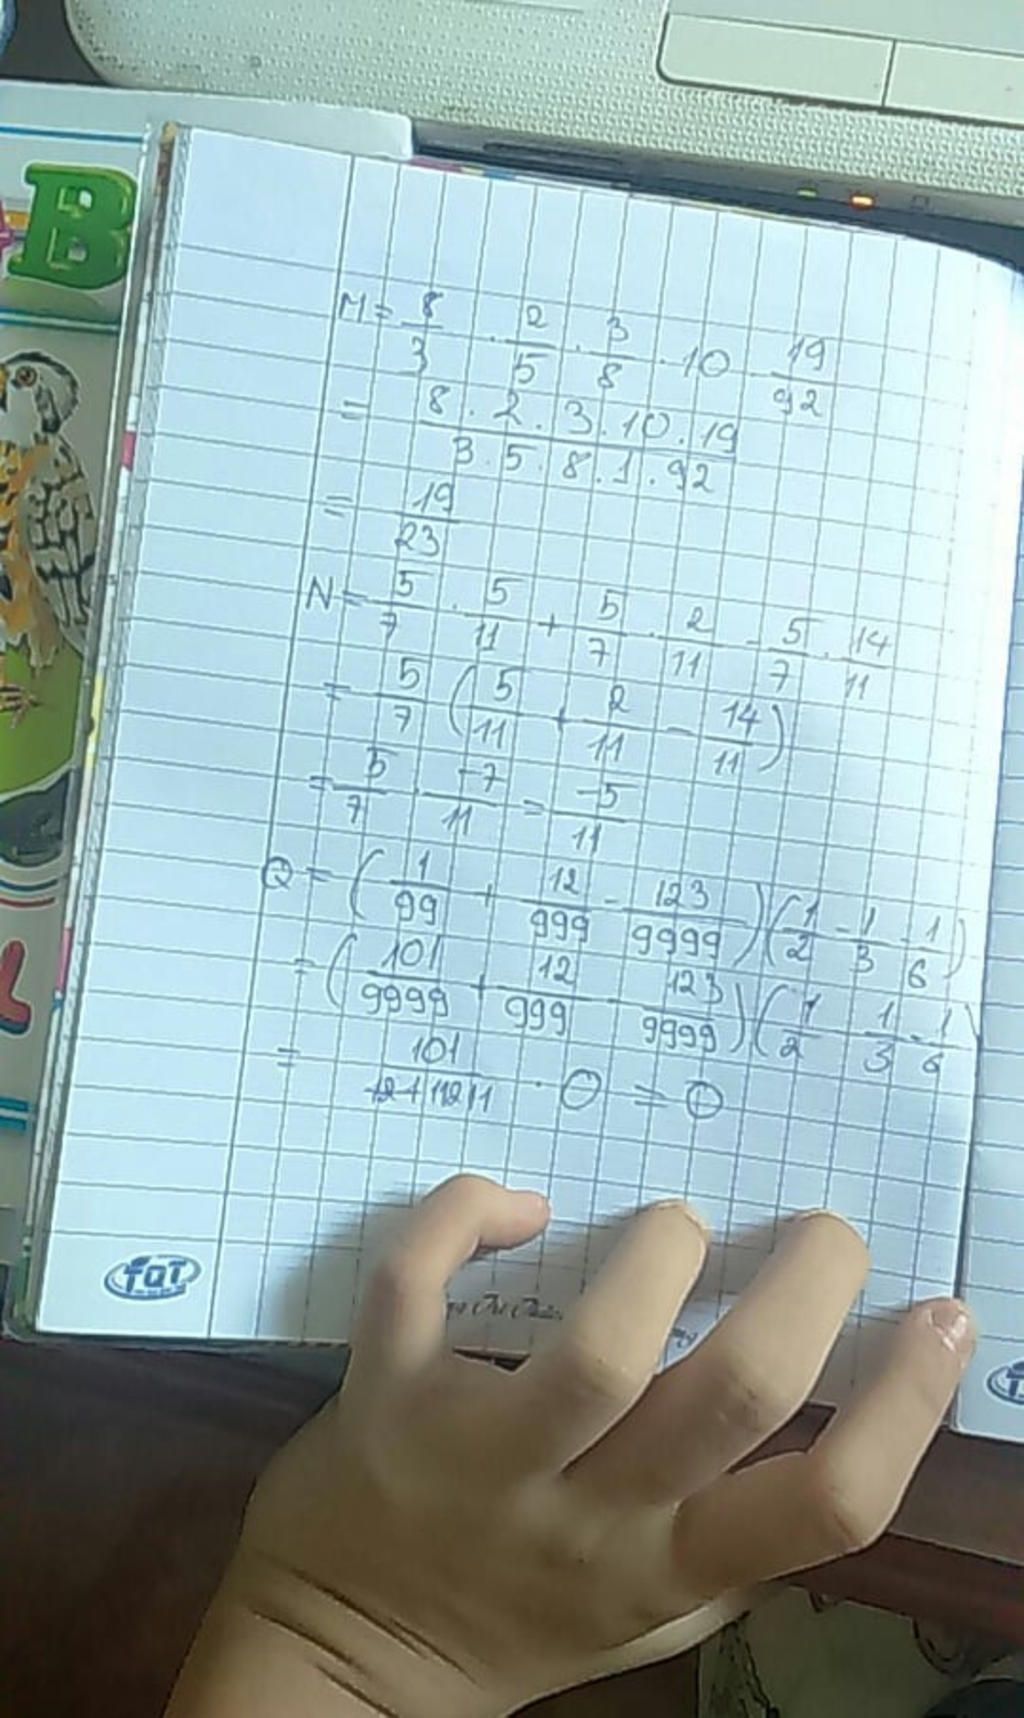 B
M = 8/3 · 2/5 · 3/8 · 10 · 19/92
= 8 . 2 . 3 . 10 . 19 / 3 . 5 . 8 . 1 . 92
= 19/23
N = 5/7 · 5/11 + 5/7 · 2/11 - 5/7 · 14/11
= 5/7 (5/11 + 2/11 - 14/11)
= 5/7 · -7/11 = -5/11
Q = (1/99 + 12/999 - 123/9999)(1/2 - 1/3 - 1/6)
= (101/9999 + 12/999 - 123/9999)(1/2 - 1/3 - 1/6)
= 101/ · 0 = 0
L
TQT